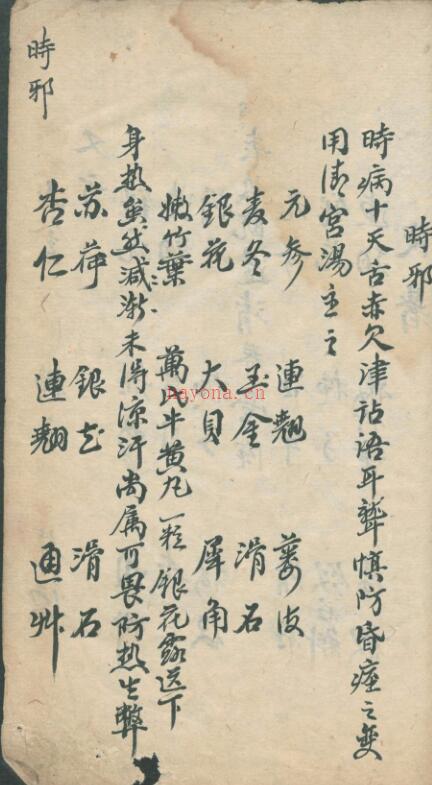 時邪
時病十天舌赤欠津詀語耳聾慎防昏痙之变
用清宮湯主之
元参 連翹 蒌皮
麦冬 玉金 滑石
銀花 大貝 犀角
嫩竹葉 萬氏牛黄丸一粒 銀花露送下
身热虽然減漸未得涼汗尚属可畏防热生弊
苏荷 銀花 滑石
杏仁 連翹 通艸
時邪
hayona.cn